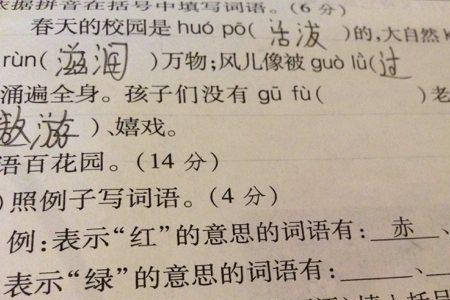 依据拼音在括号中填写词语。(6 分)
春天的校园是 huó pō( 活泼 )的,大自然 k
rùn( 滋润 )万物;风儿像被 guò lǜ( 过
涌遍全身。孩子们没有 gū fù( )老
敖游 )、嬉戏。
语百花园。(14 分)
)照例子写词语。(4 分)
例:表示“红”的意思的词语有: 赤 、
表示“绿”的意思的词语有: 、